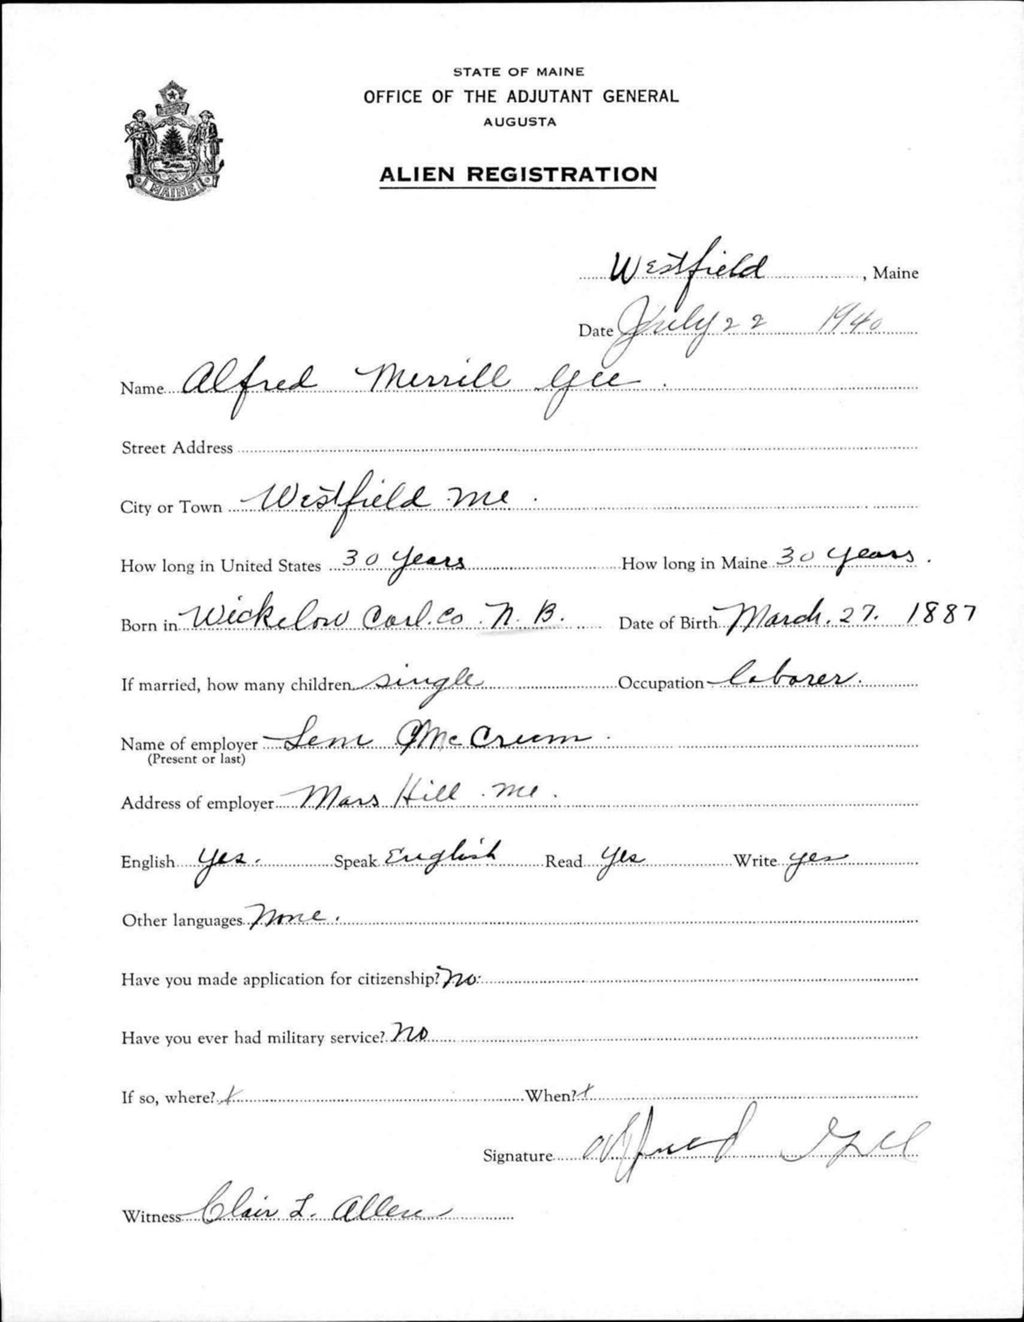 STATE OF MAINE
OFFICE OF THE ADJUTANT GENERAL
AUGUSTA
ALIEN REGISTRATION
MAINE
Westfield, Maine
Date July 22 1940
Name Alfred Merrill Gee.
Street Address
City or Town Westfield Me.
How long in United States 30 years How long in Maine 30 years.
Born in Wickelow Carl. Co. N. B. Date of Birth March. 27. 1887
If married, how many children single Occupation laborer.
Name of employer Lem McCrum.
(Present or last)
Address of employer Mars Hill. Me.
English Yes. Speak English Read Yes Write yes
Other languages None.
Have you made application for citizenship? No.
Have you ever had military service? No
If so, where? x When? x
Signature Alfred Gee
Witness Clair L. Allen